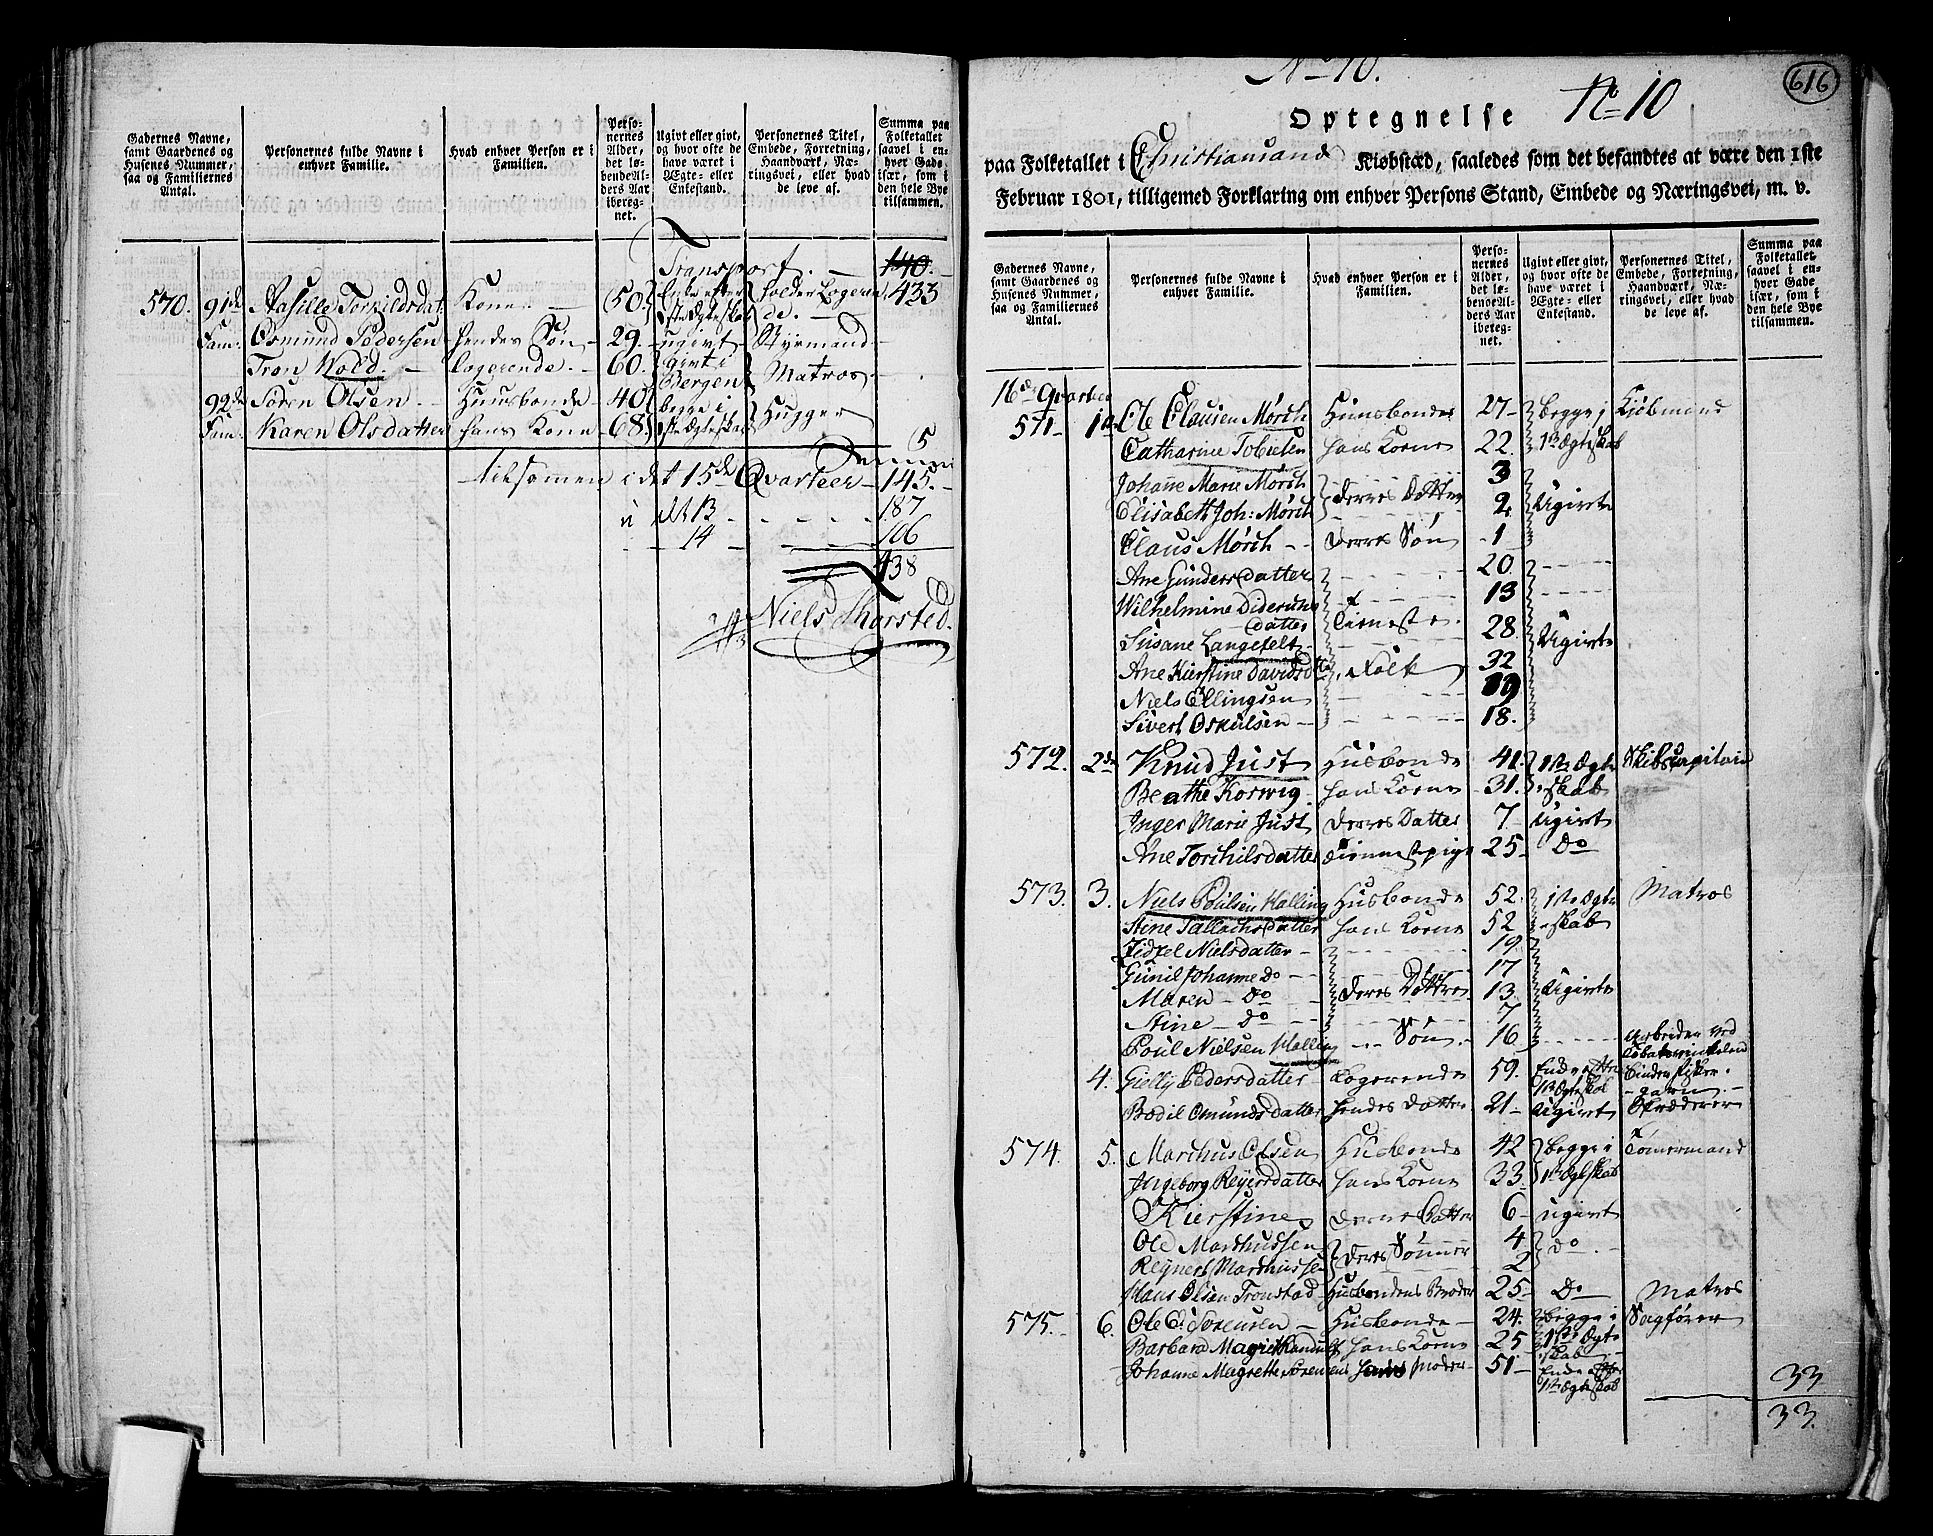 Gadernes Navne, samt Gaardenes og Husenes Nummer, saa og Familiernes Antal.
Personernes fulde Navne i enhver Familie.
Hvad enhver Person er i Familien.
Personernes Alder, det løbende Alders Aar iberegnet.
Ugivt eller givt, og hvor ofte de have været i Ægte- eller Enkestand.
Personernes Titel, Embede, Forretning, Haandværk, Næringsvei, eller hvad de leve af.
Summa paa Folketallet saavel i enhver Gade især, som i den hele Bye tilsammen.
Transport. — 140.
433
570. 91de Aasille Torkildsdat. Kone — 50. Enke efter 1ste Ægteskab holder Logerende. —
Fam. Osmund Pedersen hendes Søn — 29. ugivt — Styrmand —
Tron Wold. — logerende. — 60. givt i Bergen Matros —
92de Søren Olsen. — Huusbonde 40 begge i 1ste Ægteskab Hugger
Fam. Karen Olsdatter hans Kone — 68.
5
tilsamen i det 15de Qvarteer — 145.
13 - - - - - 187
14 - - - - 106
438
Niels Thorsted.
No 10.
616
Optegnelse No 10
paa Folketallet i Christiansand Kiøbstæd, saaledes som det befandtes at være den 1ste
Februar 1801, tilligemed Forklaring om enhver Persons Stand, Embede og Næringsvei, m. v.
Gadernes Navne, samt Gaardenes og Husenes Nummer, saa og Familiernes Antal.
Personernes fulde Navne i enhver Familie.
Hvad enhver Person er i Familien.
Personernes Alder, det løbende Alders Aar iberegnet.
Ugivt eller givt, og hvor ofte de have været i Ægte- eller Enkestand.
Personernes Titel, Embede, Forretning, Haandværk, Næringsvei, eller hvad de leve af.
Summa paa Folketallet saavel i enhver Gade især, som i den hele Bye tilsammen.
16de Qvarter
571 1te Ole Clausen Mørch Huusbonde 27 — begge i Kiøbmand
Catharine Tobiesen hans Kone 22. 1ste Ægteskab
Johanne Marie Mørch 3
Elisabeth Joh: Mørch Deres Døttre 2 Ugivte
Claus Mørch - - Deres Søn - 1
Ane Gundersdatter - - - - 20. - - - -
Wilhelmine Didericksdatter - - - - 13 - - - -
Susane Langefelt - Tieneste. 28. Ugivte
Ane Kierstine Davidsdtr Folk 32
Niels Ellingsen 19
Sivert Oskulsen — - - - - 18.
572. 2de Knud Just Husbonde 41. 1ste Ægteskab Skibscapitain
Beathe Korwig. hans Kone 31.
Inger Marie Just Deres Datter 7 — Ugivt
Ane Torchilsdatter Tienestepige 25 — Do
573. 3. Niels Poulsen Halling Husbonde 52. 1ste Ægteskab Matros
Stine Tallachsdatter hans Kone 52
Zidzel Nielsdatter - 19.
Gunil Johanne Do - - 17
Maren — Do Deres Døttre 13. Ugivte
Stine — Do - - 7
Poul Nielsen Halling - - Søn 16 - - - - Arbeider ved
4. Gielly Pedersdatter Logerende 59. Enke efter 1ste Ægteskab Binder Fiskegarn. —
Bodil Omundsdatter hendes Datter 21 — Ugivt
574. 5. Marchus Olsen Husbonde 42 begge i Tømermand
Ingeborg Reyersdatter hans Kone 33 1ste Ægteskab
Kierstine Deres Datter 6 — ugivt
Ole Marchussen Deres Sønner 4 Do - .
Reynert Marchussen 2
Hans Olsen Tronstad Husbondens Broder 25 — Do Matros
575. — 6. Ole C. Sørensen — Husbonde — 24. begge i Sagfører
Barbara Magrethe hans Kone 25 1ste Ægteskab
Johanne Magrette Sørensens hans Moder — 51 — Enke efter 1ste Ægteskab
33
33.